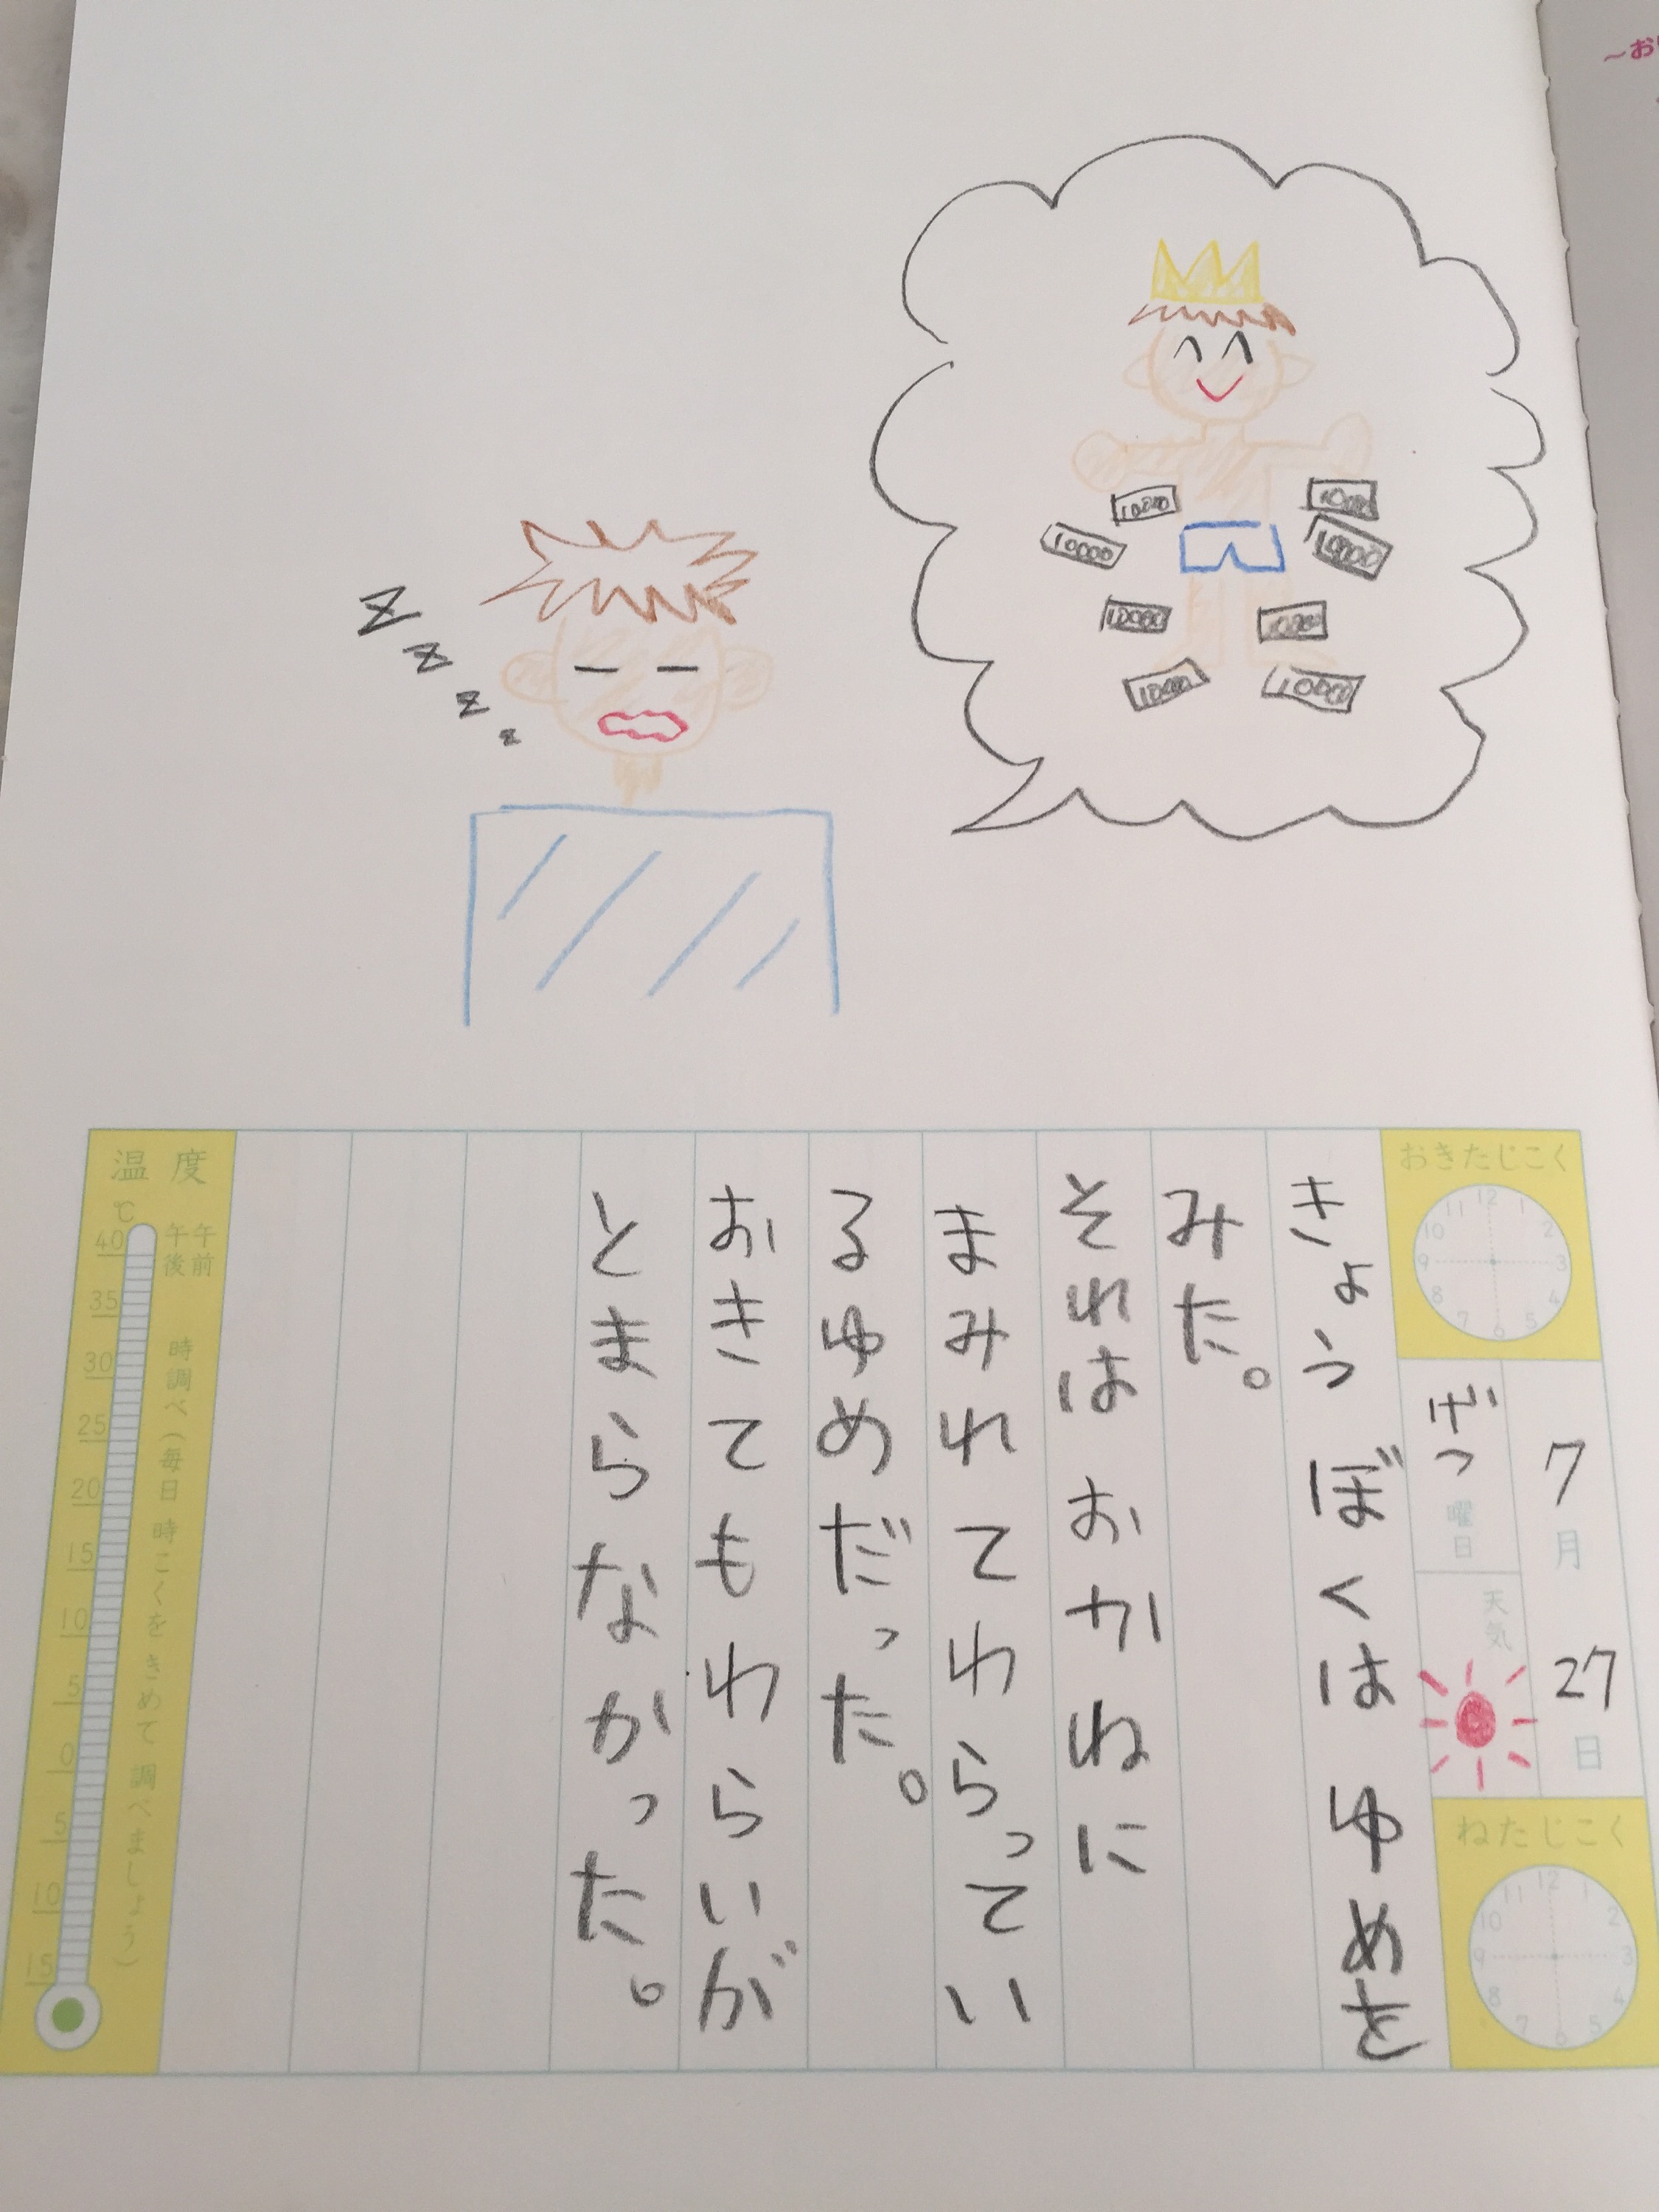 ～お
Z
Z
Z
z
10000
10000
10000
10000
10000
10000
10000
10000
おきたじこく
12 1 2 3 4 5 6 7 8 9 10 11
7月27日
げつ曜日
天気
ねたじこく
12 1 2 3 4 5 6 7 8 9 10 11
きょうぼくはゆめを
みた。
それはおかねに
まみれてわらってい
るゆめだった。
おきてもわらいが
とまらなかった。
温度
℃
午前
午後
時調べ（毎日時こくをきめて調べましょう）
40
35
30
25
20
15
10
5
0
5
10
15